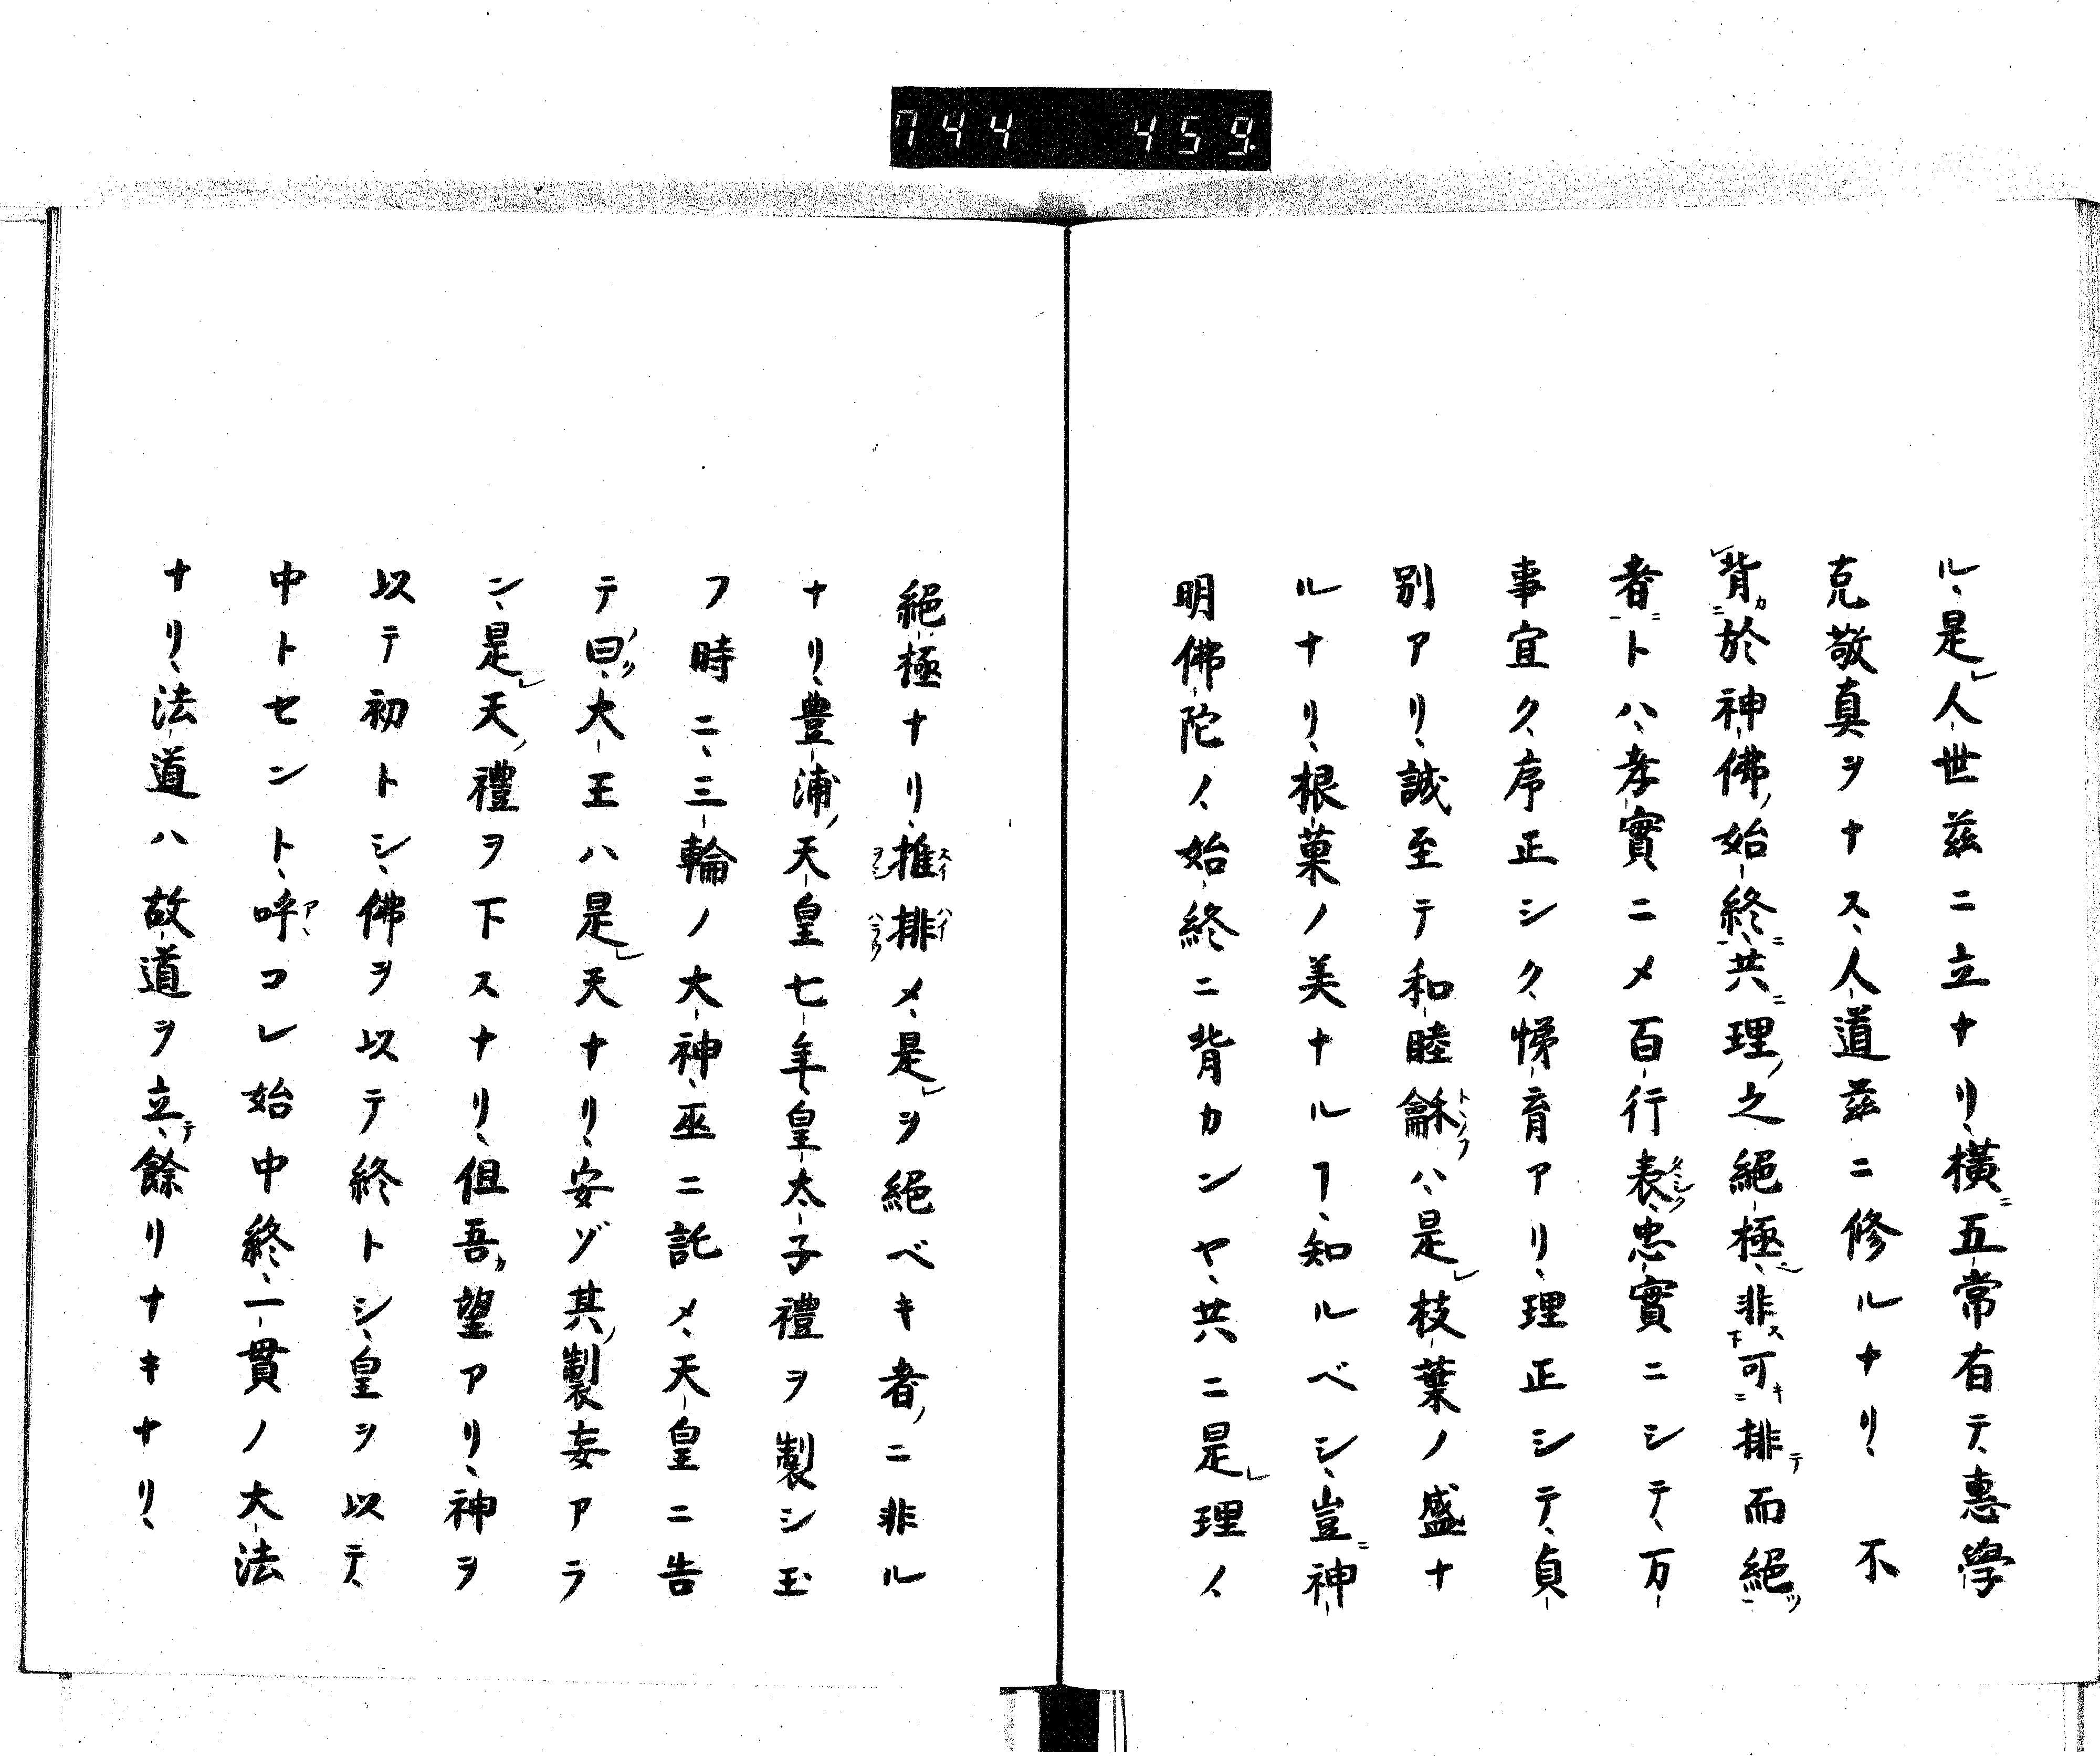 744 459.
ル、是レ人世茲ニ立ナリ、横ニ五常有テ、惠學
克敬真ヲナス、人道茲ニ修ルナリ、 不
レ背カニ於神佛ノ始終ニ、共ニ理ノ之絕極ニシ、非ス下可キニ排テ而絕ツ
者ニ一トハ、孝實ニメ百行表タシク、忠實ニシテ、万
事宜ク、序正シク、悌育アリ、理正シテ、貞
別アリ、誠至テ和睦龢トヽノフハ、是レ枝葉ノ盛ナ
ルナリ、根菓ノ美ナルヿ、知ルベシ、豈ニ神
明佛陀ノ、始終ニ背カンヤ、共ニ是レ理ノ、
絕極ナリ、推排メ、是レヲ絕ベキ者ノニ非ル
ナリ、豊浦ノ天皇七年、皇太子禮ヲ製シ玉
フ時ニ、三輪ノ大神、巫ニ託メ、天皇ニ告
テ曰ノク、大王ハ是レ天ナリ、安ゾ其ノ製妄アラ
ン、是レ天ノ禮ヲ下スナリ、但吾カ望アリ、神ヲ
以テ初トシ、佛ヲ以テ終トシ、皇ヲ以テ、
中トセント、呼アヽコレ始中終、一貫ノ大法
ナリ、法道ハ故道ヲ立テ、餘リナキナリ、